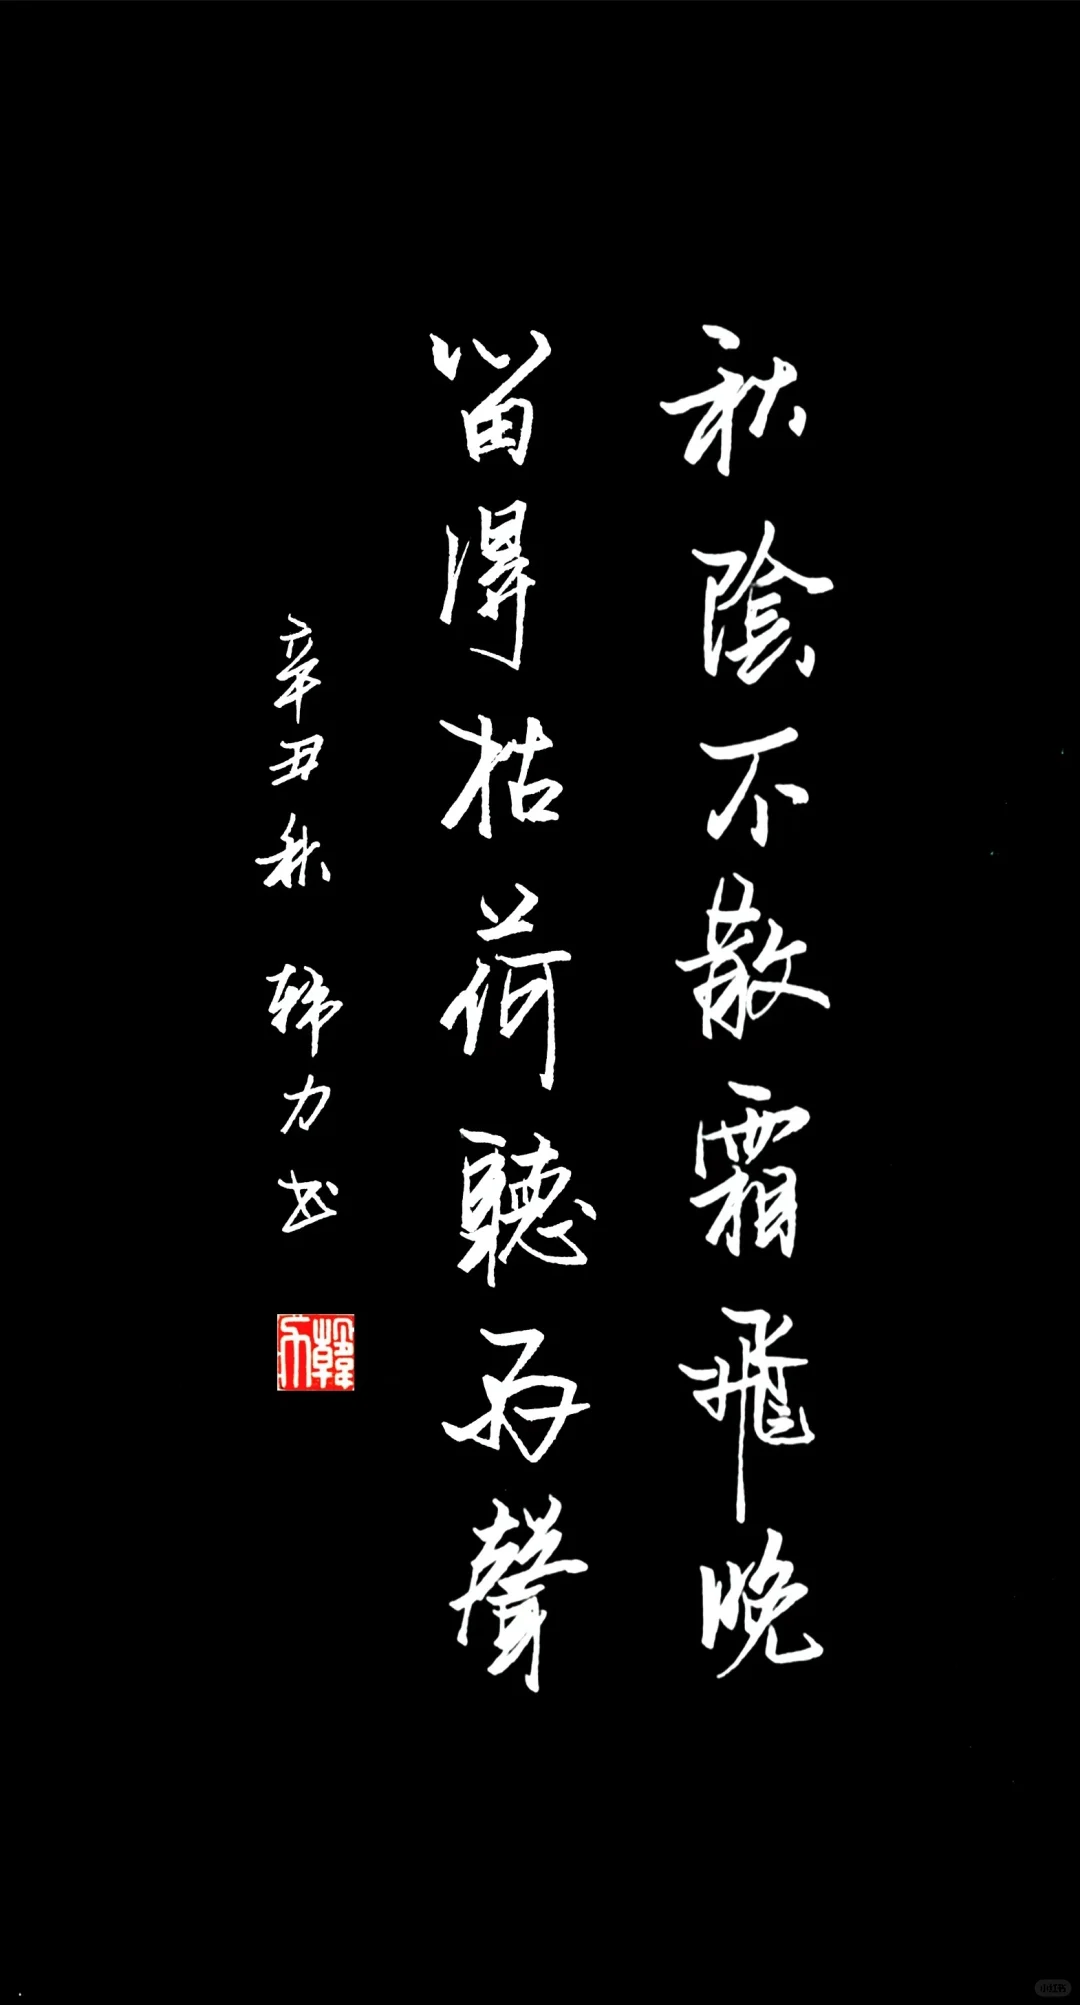 秋陰不散霜飛晚
留得枯荷聽雨聲
辛丑秋 韩力书
韓力
小红书